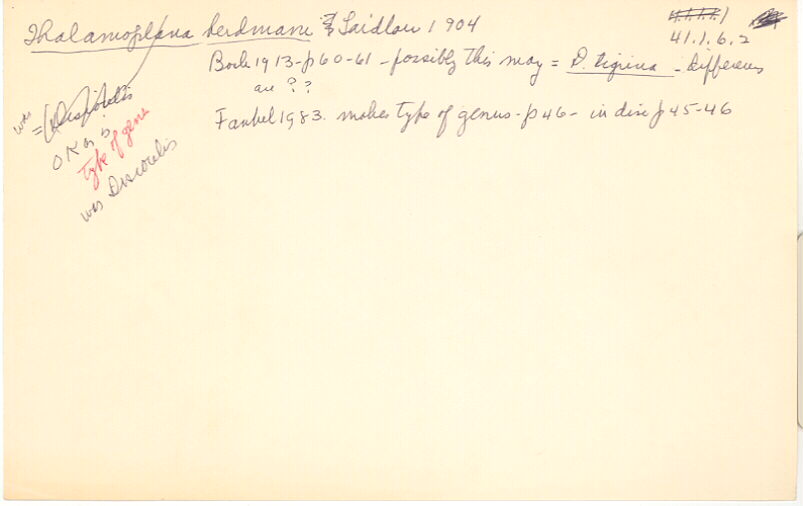 Thalamoplana herdmani Laidlaw 1904
41.1.6.2
Bock 1913 - p60-61 - possibly this may = D. tigrina - differences
are ? ?
Faubel 1983. makes type of genus - p46 - in disc p45-46
was
= (Discocelis
OK as is
type of gene
was Discocelis